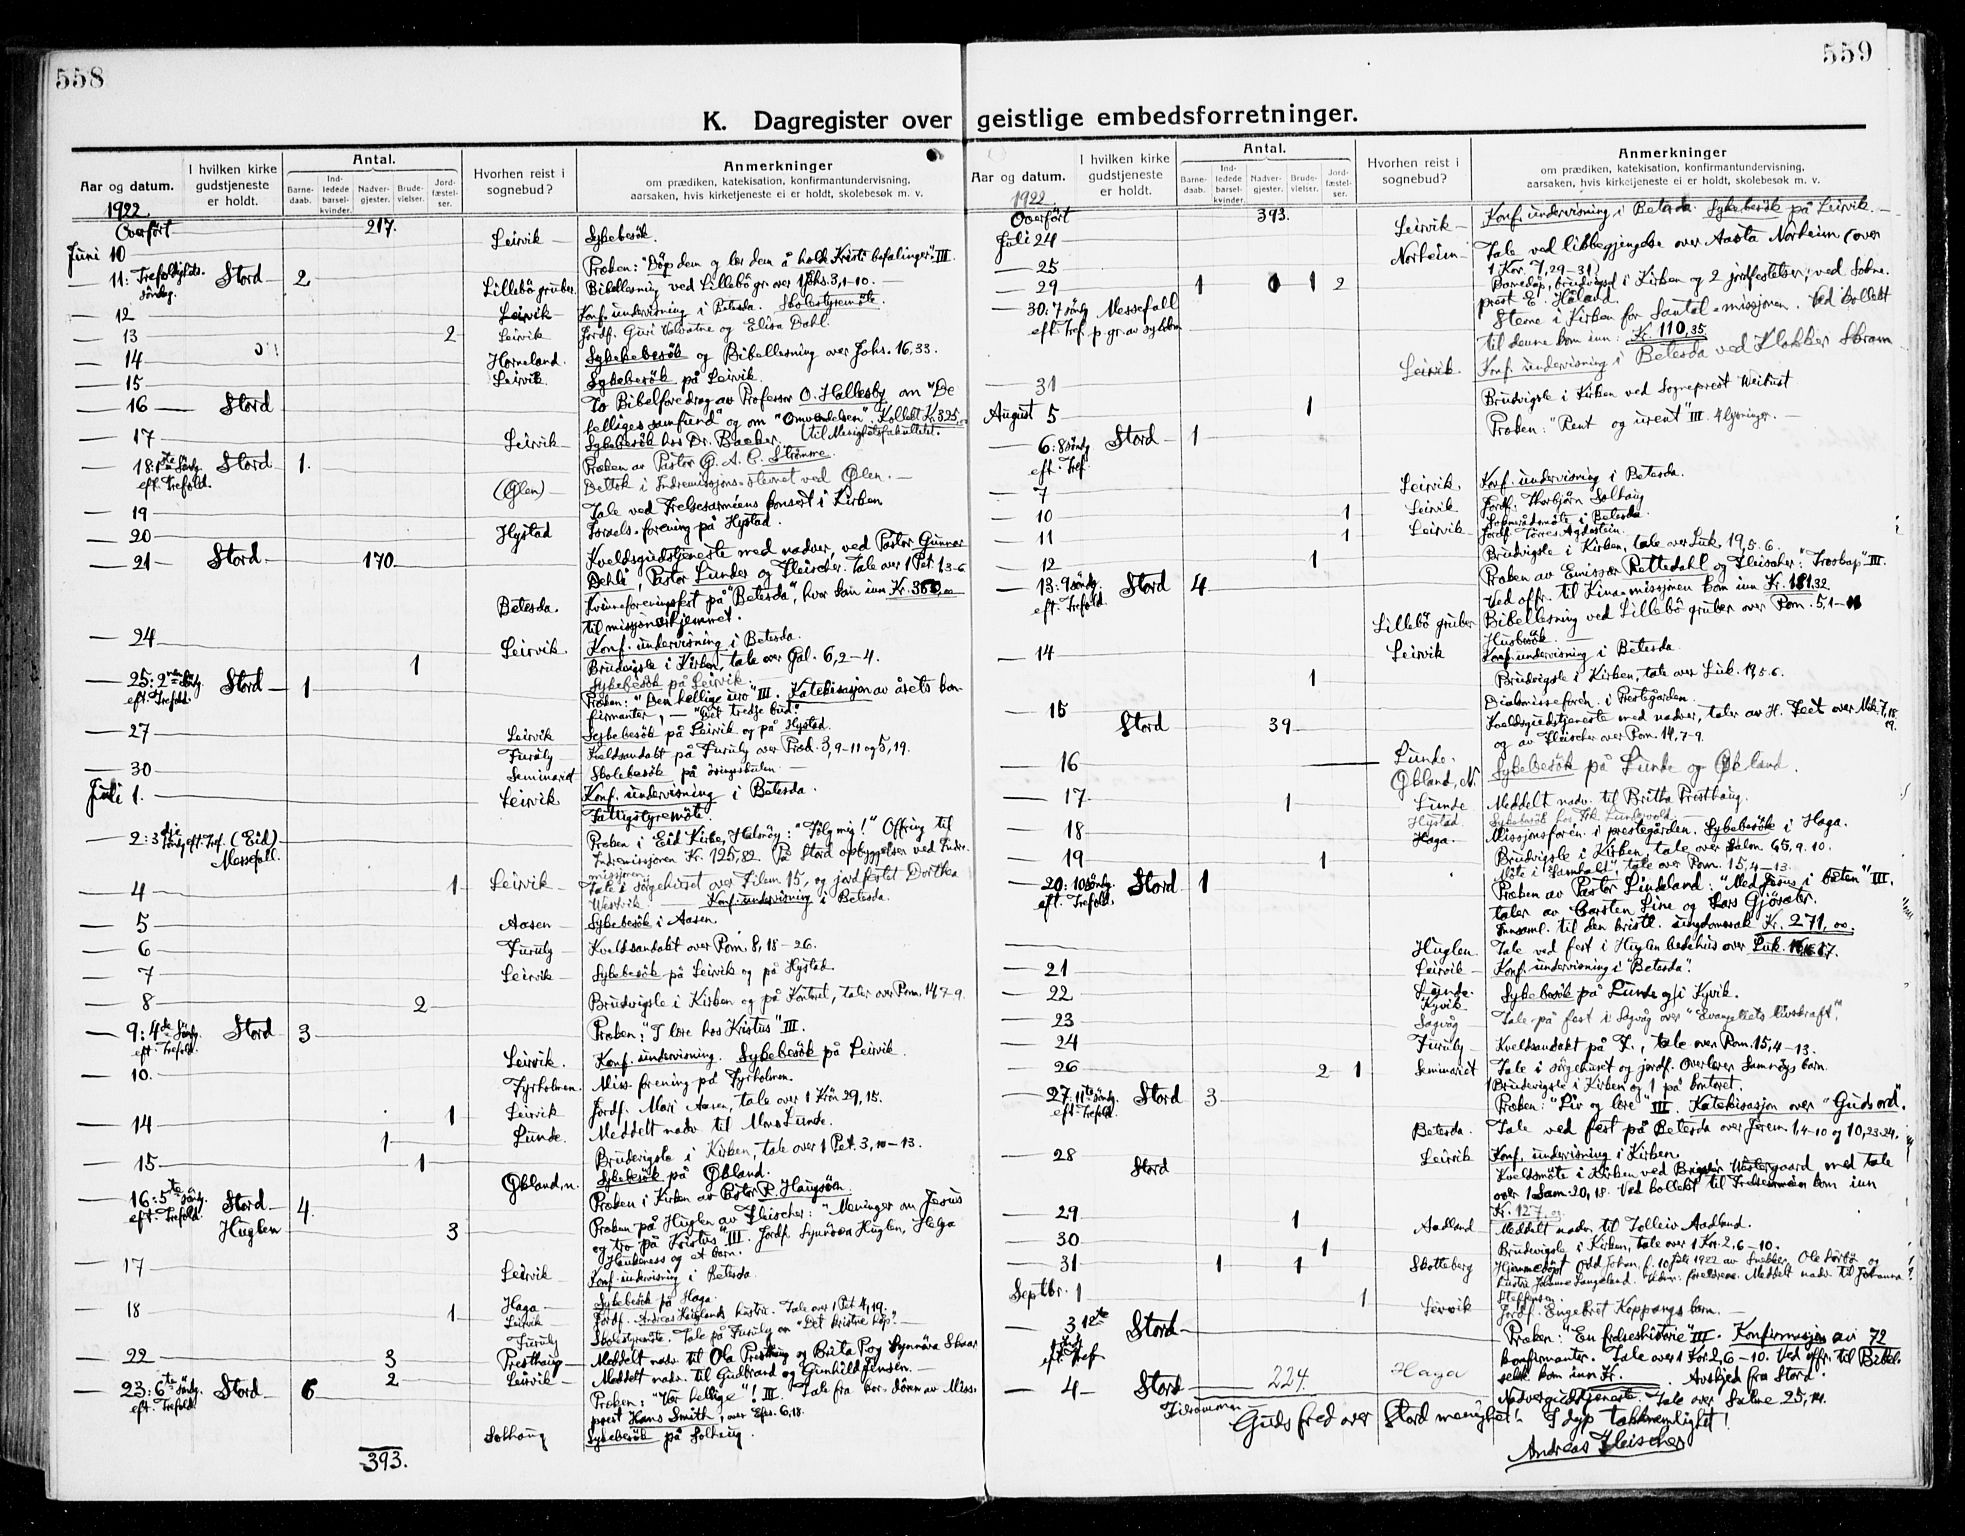 558
K. Dagregister over
Aar og datum.
I hvilken kirke gudstjeneste er holdt.
Antal.
Barnedaab.
Indledede barselkvinder.
Nadvergjester.
Brudevielser.
Jordfæstelser.
Hvorhen reist i sognebud?
Anmerkninger
om prædiken, katekisation, konfirmantundervisning,
aarsaken, hvis kirketjeneste ei er holdt, skolebesøk m. v.
1922.
Overført 217.
Juni 10 Leirvik Sykebesök.
11: Trefoldighets- söndag. Stord 2 Præken: "Döp dem og lær dem å holde Kristi befalinger" III.
Lillebö gruber. Bibellesning ved Lillebö gr. over 1 Johs. 3,1-10.
12 Leirvik Konf. undervisning i Betesda. Skolestyremöte.
13 2 Leirvik Jordf. Guri Valvatne og Elisa Dahl.
14 Horneland. Sykebesök og Bibellesning over Johs. 16,33.
15 Leirvik. Sykebesök på Leirvik.
16 Stord To Bibelforedrag av Professor O. Hallesby om "De
helliges samfund" og om "Omvendelsen". Kollekt Kr. 325,
17 Leirvik Sykebesök hos Dr. Backer. (til Menighetsfakultetet.
18: 1ste sönd. eft. Trefold. Stord 1. Præken av Pastor G. A. C. Strömme.
(Ølen) Deltok i Indremissjons-stevnet ved Ølen.
19 Tale ved Frelsesarmeens konsert i Kirken
20 Hystad Israels-forening på Hystad.
21 Stord 170 Kveldsgudstjeneste med nadver, ved Pastor Gunnar
Dehli, Pastor Lunder og Fleischer. Tale over 1 Pet. 1,3-6
Betesda. Kvinneforeningsfest på "Betesda", hvor kom inn Kr. 350,00
til missjonshjemmet.
24 Leirvik. Konf. undervisning i Betesda.
1 Brudvigsle i Kirken, tale over Gal. 6,2-4.
Sykebesök på Leirvik.
25: 2nen sönd. eft. Trefold. Stord 1 Præken: "Den hellige uro" III. Katekisasjon av årets kon-
firmanter, — "Det tredje bud".
27 Leirvik Sykebesök på Leirvik og på Hystad.
Furuly Kveldsandakt på Furuly over Præd. 3,9-11 og 5,19.
30 Seminariet Skolebesök på övingsskulen
Juli 1. Leirvik Konf. undervisning i Betesda.
Fattigstyremöte.
2: 3die söndag eft. Tref. (Eid) Messefall. Præken i Eid Kirke, Halsnöy: "Fölg mig!" Offring til
Indremissjonen Kr. 125,82. På Stord opbyggelsen ved Indre-
missjonen
4 1 Leirvik Tale i sörgehuset over Filem 15, og jordfestet Dorthea
Westvik. Konf. undervisning i Betesda.
5 Aasen Sykebesök i Aasen.
6 Furuly Kveldsandakt over Rom. 8,18-26.
7 Leirvik Sykebesök på Leirvik og på Hystad.
8 2 Brudvigsle i Kirken og på Kontoret, taler over Rom. 14,7-9.
9: 4de sönd. eft. Trefold. Stord 3 Præken: "I lære hos Kristus" III.
Leirvik. Konf. undervisning. Sykebesök på Leirvik.
10. Fyrholmen. Miss. forening på Fyrholmen.
1 Leirvik Jordf. Mari Aasen, tale over 1 Krön 29,15.
14 1 Lunde. Meddelt nadv. til Mons Lunde.
15 1 Brudevigsle i Kirken, tale over 1 Pet. 3,10-13.
Økland, n. Sykebesök på Økland.
16: 5te sönd. eft. Trefold. Stord 4 Præken i Kirken av Pastor R. Haugsöen
Huglen 3 Præken på Huglen av Fleischer: "Meninger om Jesus
og tro på Kristus". III. Jordf. Synnöva Huglen, Helga
Haukenæss og et barn.
17 Leirvik Konf. undervisning i Betesda.
Haga Sykebesök på Haga.
18 1 Leirvik Jordf. Andreas Hauglands hustru. Tale over 1 Pet. 4,19.
Furuly Skolestyremöte. Tale på Furuly om "Det kristne håp".
22 3 Presthaug Meddelt nadv. til Ola Presthaug og Brita P og Synnöva Skaar
2 Leirvik Meddelt nadv. til Gudbrand og Gunhild Jensen.
23: 6te sönd. eft. Trefold. Stord 6 Præken: "Vær hellige"! III. Tale fra kor-dören av Miss.
prest Hans Smith, over Efes. 6,18.
Solhaug Sykebesök på Solhaug.
393.
559
geistlige embedsforretninger.
Aar og datum.
I hvilken kirke gudstjeneste er holdt.
Antal.
Barnedaab.
Indledede barselkvinder.
Nadvergjester.
Brudevielser.
Jordfæstelser.
Hvorhen reist i sognebud?
Anmerkninger
om prædiken, katekisation, konfirmantundervisning,
aarsaken, hvis kirketjeneste ei er holdt, skolebesøk m. v.
1922.
Overført 393.
Juli 24 Leirvik Konf. undervisning i Betesda. Sykebesök på Leirvik.
25 Norheim Tale ved likbegjengelse over Aasta Norheim (over
1 Kor. 7,29-31)
29 1 1 2 Barnedåp, brudvigsel i Kirken og 2 jordfestelser, ved Sokne-
prest E. Haland.
30: 7 sönd. eft. Tref. Messefall p. gr. av sykdom Stevne i Kirken for Santal-missjonen. Ved kollekt
til denne kom inn: Kr 110,35
31 Leirvik. Konf. undervisning i Betesda ved Klokker Skram
August 5 1 Brudvigsle i Kirken ved Sogneprest Weihust
6: 8 sönd. eft. Tref. Stord 1 Præken: "Rent og urent" III. 4 lysninger.
7 Leirvik Konf. undervisning i Betesda.
10 1 Leirvik Jordf. Thorbjörn Solhaug
Soknerådsmöte i Betesda.
11 1 Leirvik Jordf. Torres Agdestein.
12 1 Brudvigsle i Kirken, tale over Luk. 19,5.6.
13: 9 sönd. eft. Trefold. Stord 4 Præken av Emissær Rettedahl og Fleischer: "Troskap" III.
Ved offr. til Kina-missjonen kom inn Kr. 181,32
Lillebö gruber Bibellesning ved Lillebö gruber over Rom. 5,1-11
Husbesök.
14 Leirvik Konf. undervisning i Betesda.
1 Brudvigsle i Kirken, tale over Luk. 19,5.6.
15 Diakonisseforen. i Prestegården.
Stord 39 Kveldsgudstjeneste med nadver, taler av H. Teet over Mik. 7,18.
19.
og av Fleischer over Rom. 14,7-9.
16 Lunde. Økland, N. Sykebesök på Lunde og Økland.
17 1 Lunde Meddelt nadv. til Britha Presthaug.
Hystad Sykebesök for Frk. Lundevold.
18 Haga. Missjonsforen. i prestegården. Sykebesök i Haga.
19 1 Brudvigsle i Kirken, tale over Salm. 65,9.10.
Möte i "Samhald", tale over Rom. 15,4-13.
20: 10 sönd. eft. Trefold. Stord 1 Præken av Pastor Lindeland: "Med Jesus i båten" III.
taler av Carsten Line og Lars Gjöseter.
Innsaml. til den kristl. ungdomssak Kr. 271,00.
Huglen Tale ved fest i Huglen bedehus over Luk.
21 Leirvik Konf. undervisning i "Betesda".
22 Lunde. Kyvik Sykebesök på Lunde og i Kyvik.
23 Sagvåg Tale på fest i Sagvåg over "Evangeliets livskraft".
24 Furuly Kveldsandakt på F., tale over Rom. 15,4-13.
26 2 1 Seminariet Tale i sörgehuset og jordf. Overlærer Samnöys barn.
1 Brudevigsle i Kirken og 1 på kontoret.
27. 11te sönd. eft. Trefold. Stord 3 Præken: "Liv og lære" III. Katekisasjon over "Guds ord".
Betesda. Tale ved fest på Betesda over Jerem. 1,4-10 og 10,23.24.
28 Leirvik Konf. undervisning i Kirken.
Stord Kveldsmöte i Kirken ved Brigader Westergaard, med tale
over 1 Sam. 20,18. Ved kollekt til Frelsesarmeen kom inn
Kr. 127,
29 1 Aadland Meddelt nadv. til Tolleiv Aadland.
30 1 Brudevigsle i Kirken, tale over 1 Kor. 2,6-10.
31 1 1 Skotteberg Hjemmedöpt Odd Johan, f. 10 Juli 1922 av Snekker Ole Sörbö og
hustru Johanne Langeland. Meddelt nadv. til Johanna
Steffensen
Septbr. 1 1 Leirvik Jordf. Engebret Koppangs barn.
3 12te sönd. eft. Tref. Stord Præken: "En frelseshistorie" III. Konfirmasjon av 72
konfirmanter. Tale over 1 Kor 2,6-10. Ved offr. til Bibel-
selsk. kom inn Kr. . Avskjed fra Stord.
4 Stord 224. Haga Nadvergudstjeneste. Tale over Salme 25,14.
Tilsammen
Guds fred over Stord menighet! I dyp takknemlighet!
Andreas Fleischer